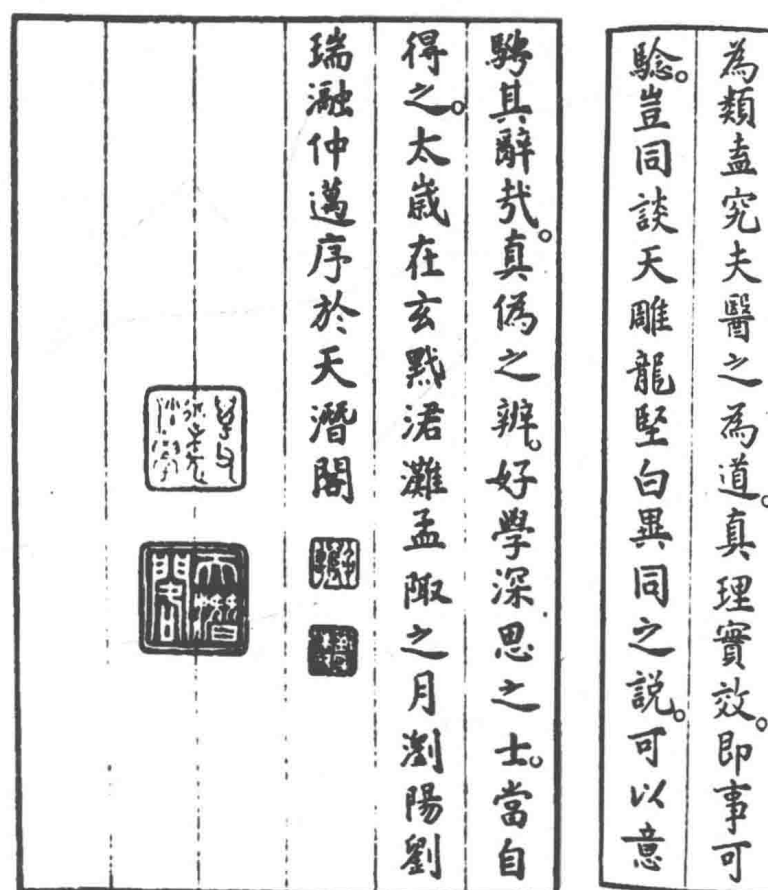 為類盍究夫醫之為道。真理實效。即事可
驗。豈同談天雕龍堅白異同之說。可以意
騁其辭哉。真偽之辨。好學深思之士。當自
得之。太歲在玄黓涒灘孟陬之月瀏陽劉
瑞瀜仲邁序於天潛閣
天潛
閣